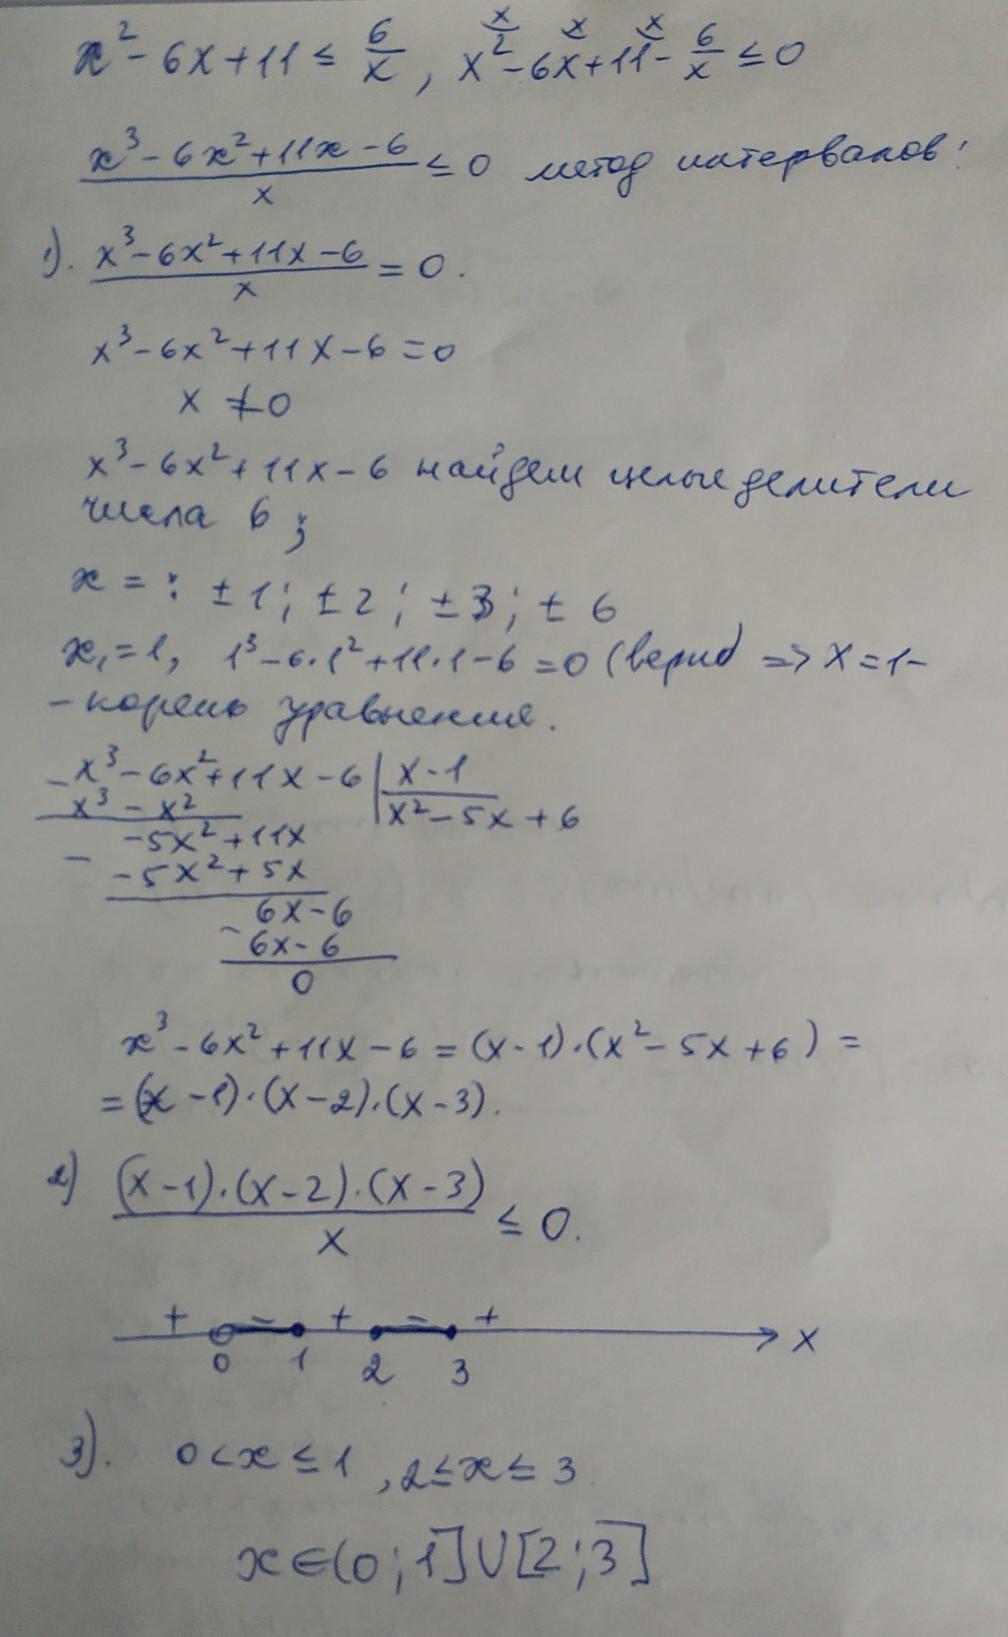 x² - 6x + 11 ≤ 6/x , x² - 6x + 11 - 6/x ≤ 0
x x x
(x³ - 6x² + 11x - 6)/x ≤ 0 метод интервалов:
1). (x³ - 6x² + 11x - 6)/x = 0.
x³ - 6x² + 11x - 6 = 0
x ≠ 0
x³ - 6x² + 11x - 6 найдем целые делители
числа 6 ;
x = : ± 1; ± 2 ; ± 3; ± 6
x₁ = 1, 1³ - 6·1² + 11·1 - 6 = 0 (верно) => x = 1 -
- корень уравнения.
- x³ - 6x² + 11x - 6 | x - 1
x³ - x² | x² - 5x + 6
-5x² + 11x
- -5x² + 5x
6x - 6
- 6x - 6
0
x³ - 6x² + 11x - 6 = (x - 1)·(x² - 5x + 6) =
= (x - 1)·(x - 2)·(x - 3).
2) ((x - 1)·(x - 2)·(x - 3))/x ≤ 0.
+ - + - +
0 1 2 3 x
3). 0 < x ≤ 1 , 2 ≤ x ≤ 3
x ∈ (0 ; 1] ∪ [2 ; 3]